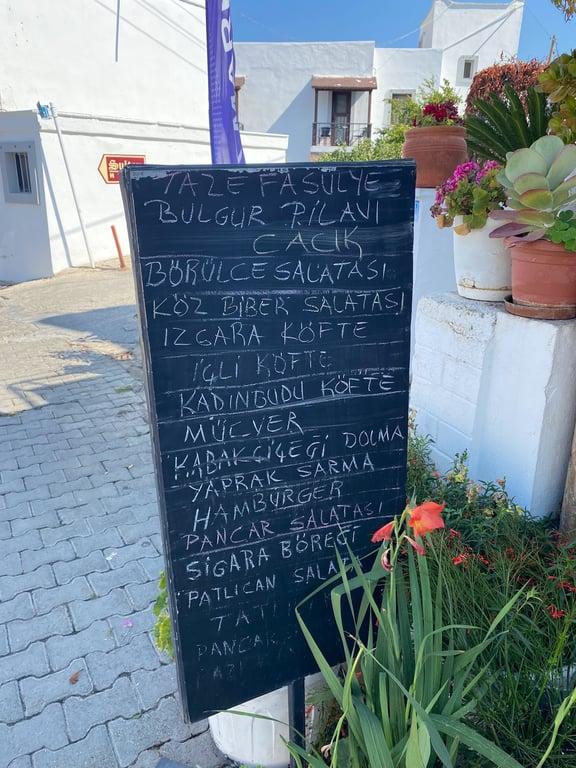 TAZE FASULYE
BULGUR PİLAVI
CACIK
BÖRÜLCE SALATASI
KÖZ BİBER SALATASI
IZGARA KÖFTE
İÇLİ KÖFTE
KADINBUDU KÖFTE
MÜCVER
KABAK ÇİÇEĞİ DOLMA
YAPRAK SARMA
HAMBURGER
PANCAR SALATASI
SİGARA BÖREĞİ
PATLICAN